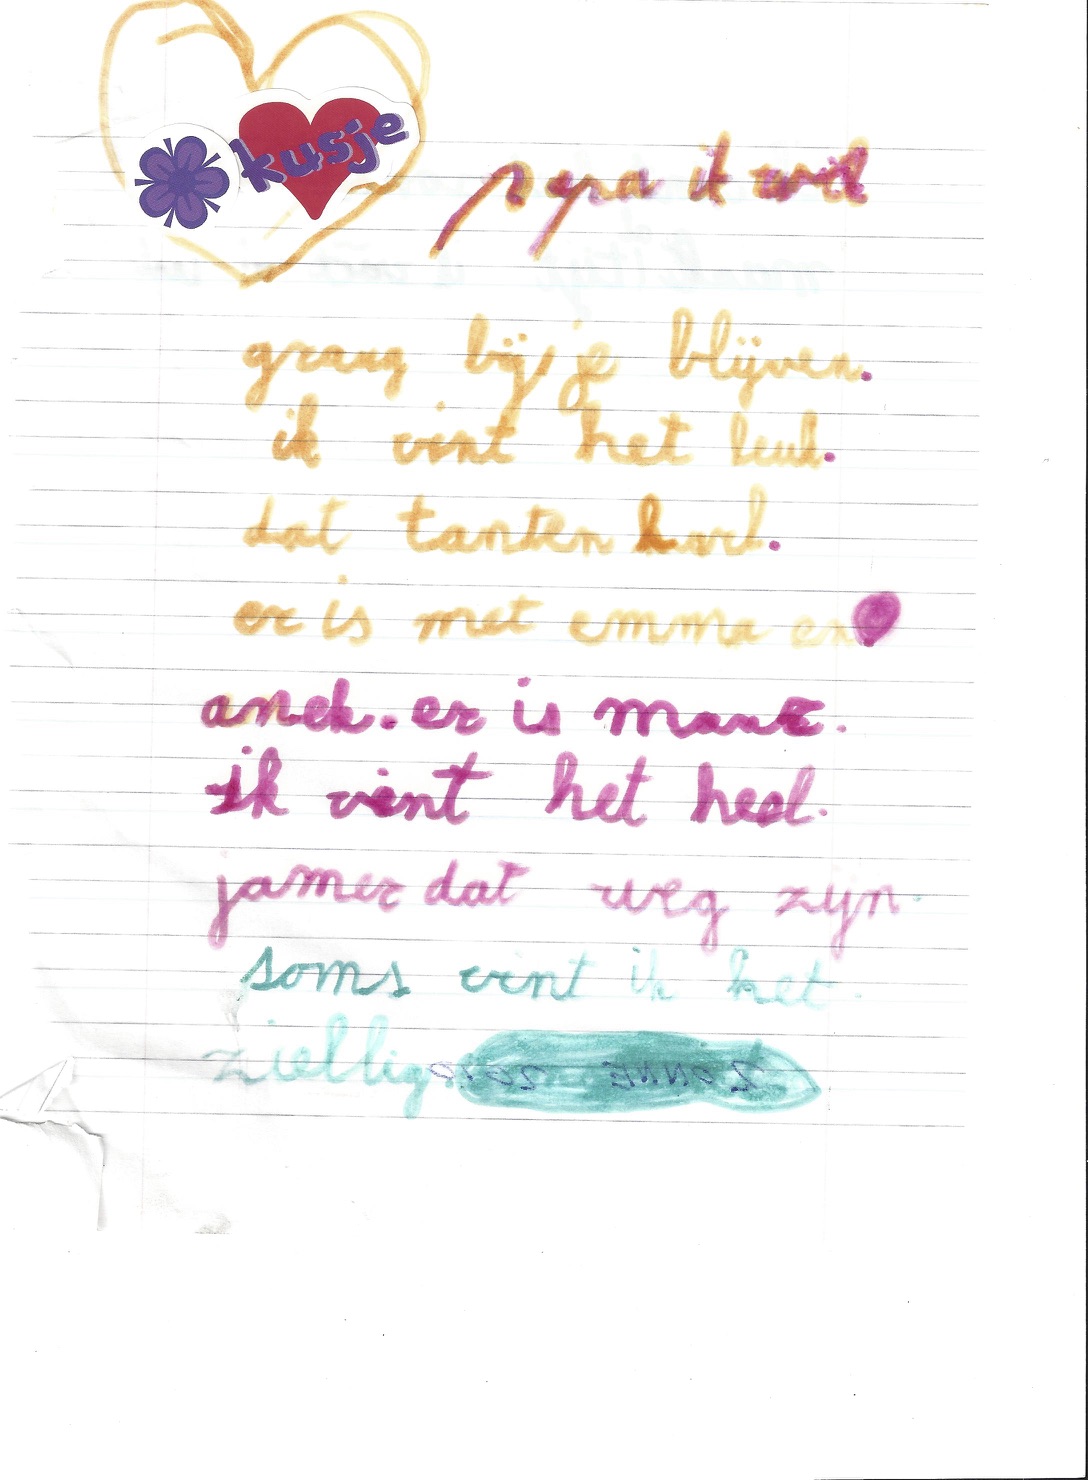 kusje
papa ik wil
graag bij je blijven.
ik vint het leuk.
dat tanten karel.
er is met emma en
anek. er is maar.
ik vint het heel.
jamer dat weg zijn.
soms vint ik het.
ziellig